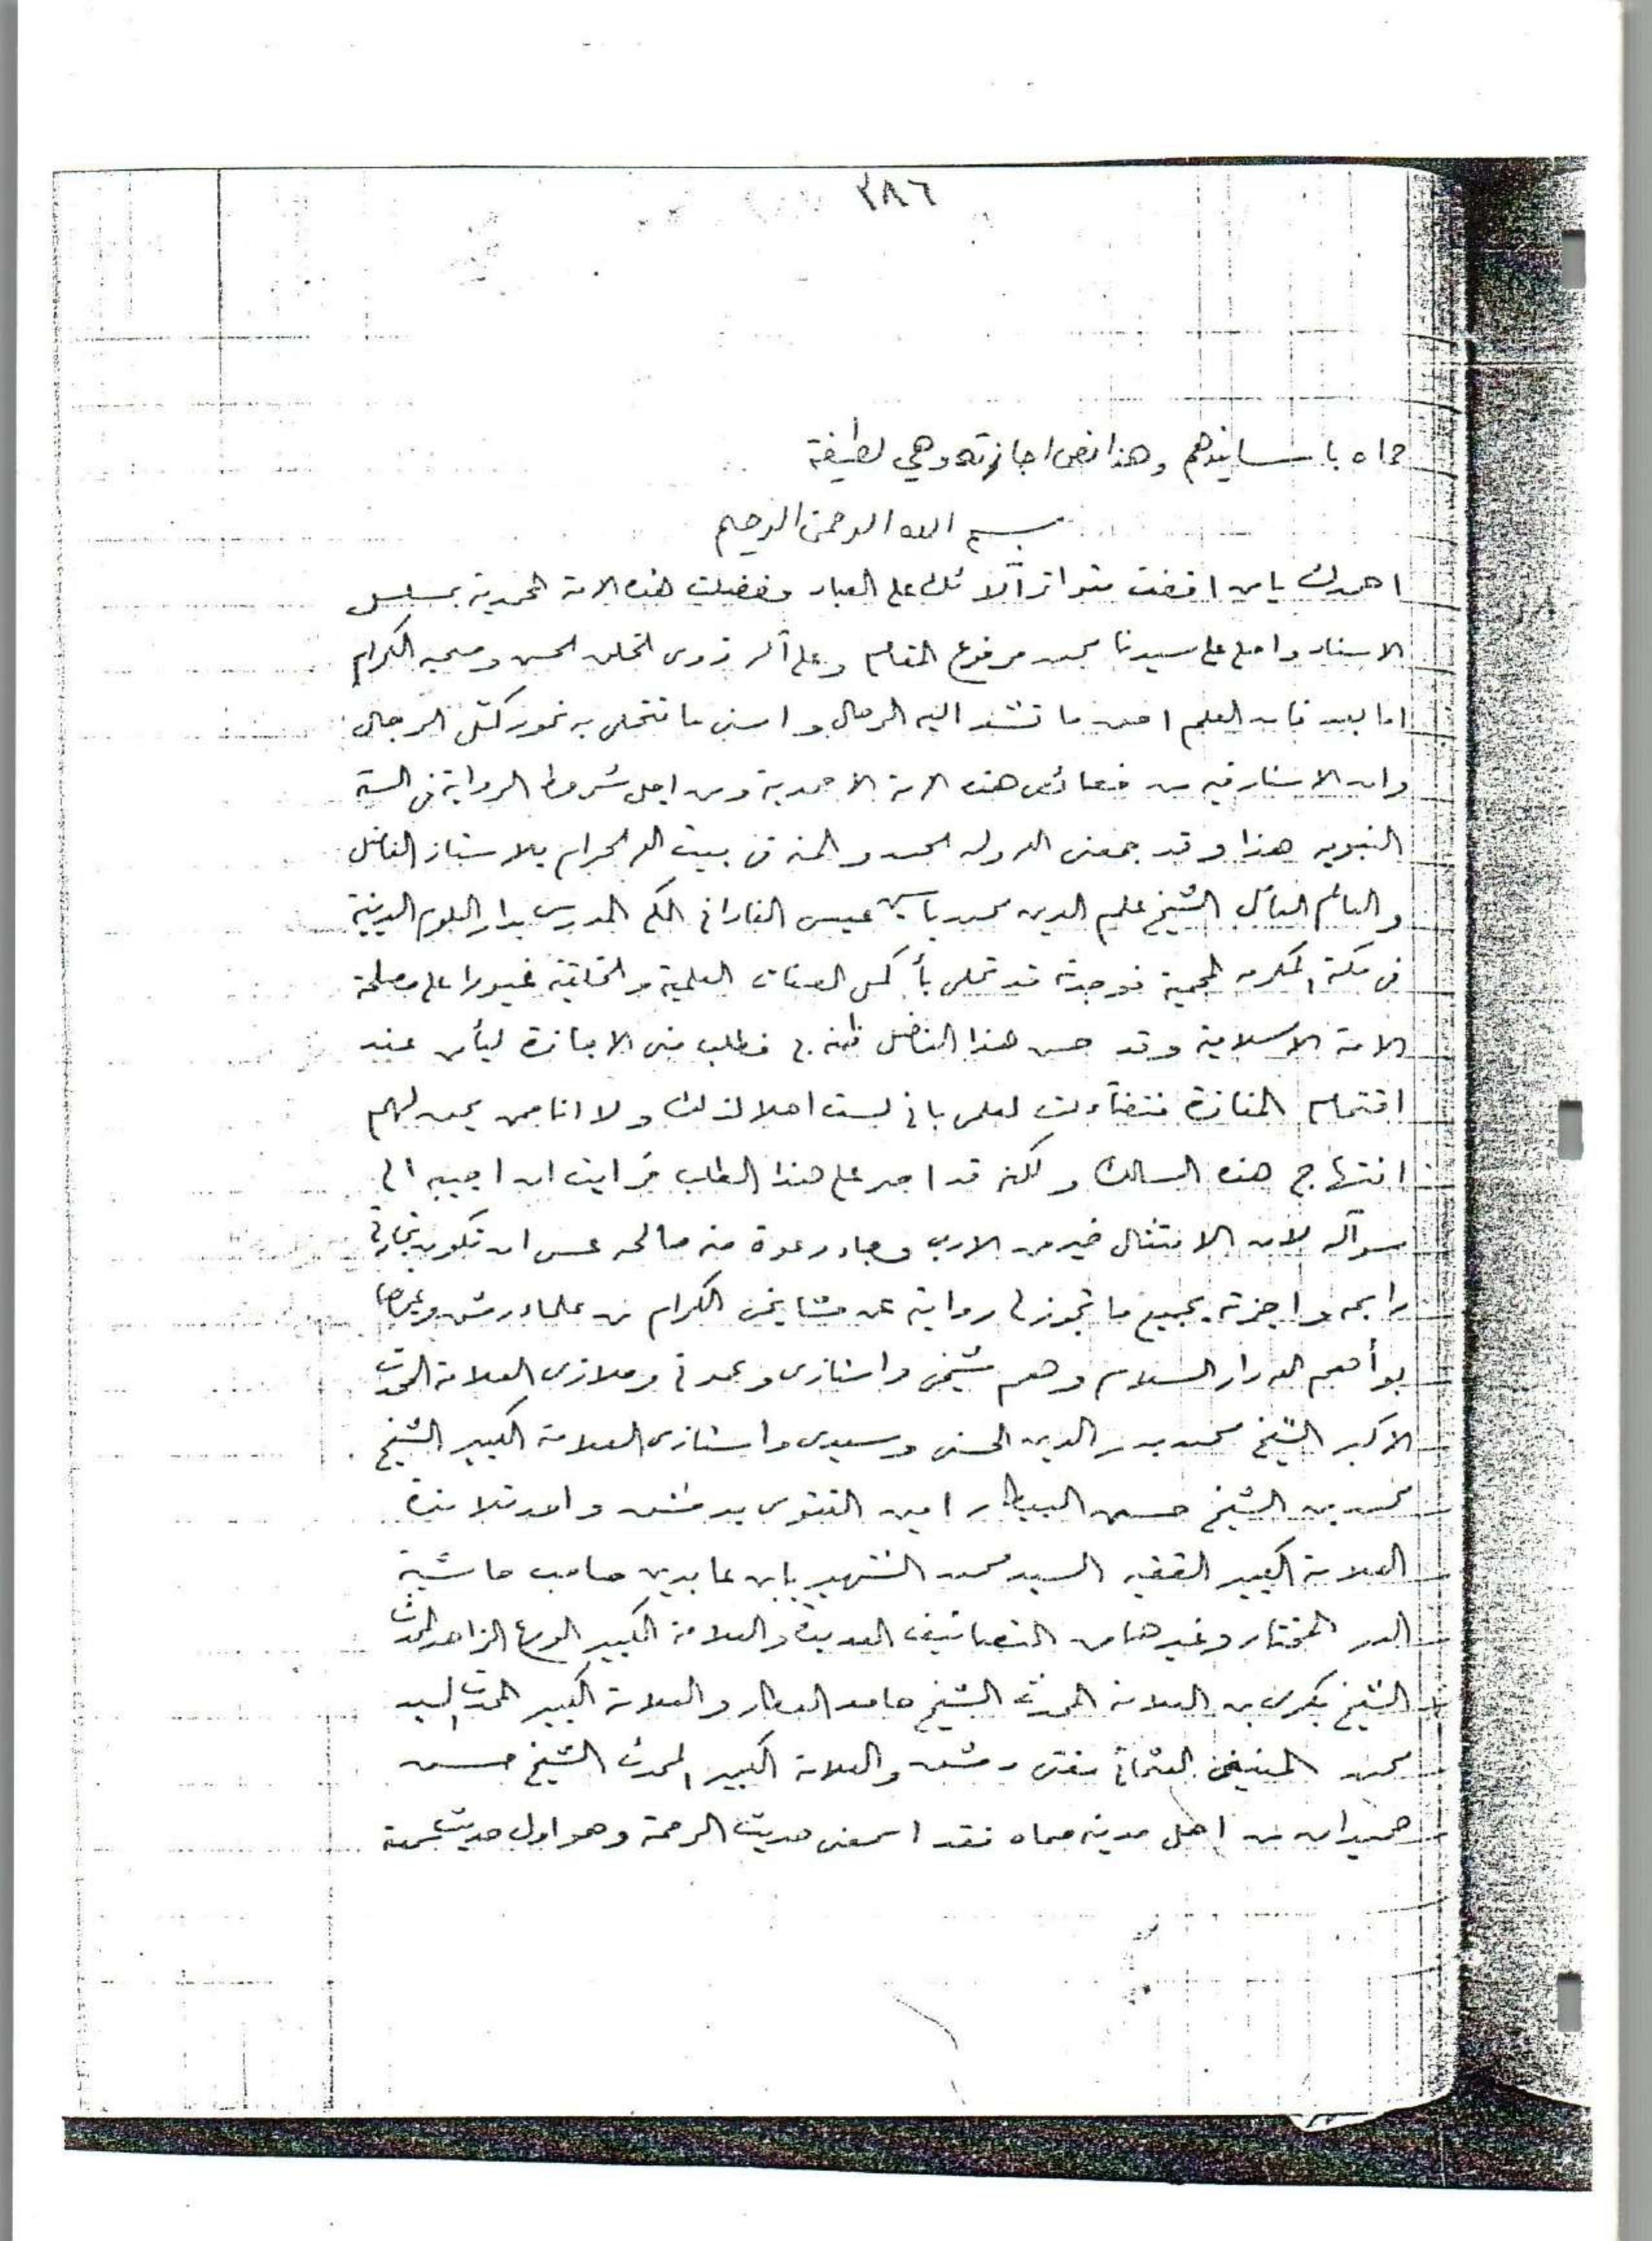 ٣٨٦
حماه باسانيدهم وهذا نص اجازته وهي لطيفة
بسم الله الرحمن الرحيم
احمدك يا من افضت متواتر آلائك على العباد وفضلت هذه الامة المحمدية بمسلسل
الاسناد واصلي على سيدنا محمد مرفوع المقام وعلى آله ذوى الخلق الحسن وصحبه الكرام
اما بعد فان العلم احسن ما تشد اليه الرحال واسنى ما تتحلى به نحور كمّل الرجال
وان الاسناد فيه من خصائص هذه الامة الاحمدية ومن اجل شروط الرواية في السنة
النبويه هذا وقد جمعنى الله وله الحمد والمنه في بيت الله الحرام بالاستاذ الفاضل
والعالم العامل الشيخ علم الدين محمد ياسين عيسى الفاداني المكي المدرس بدار العلوم الدينية
في مكة المكرمه المحمية فوجدته قد تحلى بأكمل الصفات العلمية والخلقية غيورا على مصلحة
الامة الاسلامية وقد حسن هذا الفاضل ظنه بي فطلب منى الاجازة ليأمن عند
اقتحام المفازة فتضآءلت لعلمى باني لست اهلا لذلك ولا انا ممن يحق لهم
انتهاج هذه المسالك ولكنه قد اصر على هذا الطلب فرايت ان اجيبه الى
سوآله لان الامتثال خير من الادب ورجاء دعوة منه صالحه عسى ان تكون تجارتي
رابحه واجزته بجميع ما تجوز لى روايته عن مشايخى الكرام من علماء دمشق وغيرها
بوأهم الله دار السلام وهم شيخى واستاذى وعمدتي وملاذى العلامة المحدث
الاكبر الشيخ محمد بدر الدين الحسنى وسيدى واستاذى العلامة الكبير الشيخ
محمد بن الشيخ حسن البيطار امين الفتوى بدمشق واحد تلامذة
العلامة الكبير الفقيه السيد محمد الشهير بابن عابدين صاحب حاشية
الدر المختار وغيرها من التصانيف العديدة والعلامة الكبير الورع الزاهد المحدث
الشيخ بكرى بن العلامة المحدث الشيخ حامد العطار والعلامة الكبير المحدث السيد
محمد المنينى العثماني مفتى دمشق والعلامة الكبير المحدث الشيخ حسن
حميدان من اهل مدينه حماه فقد اسمعنى حديث الرحمة وهو اول حديث سمعته